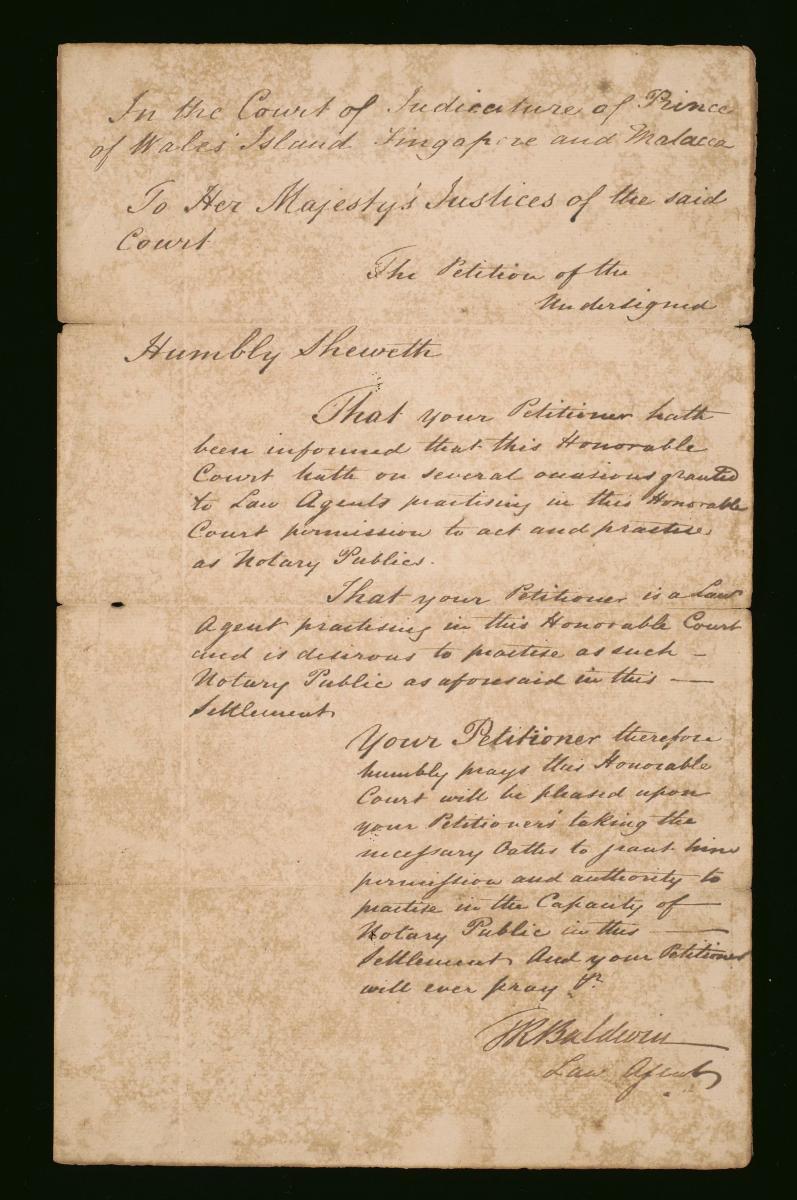 In the Court of Judicature of Prince
of Wales' Island Singapore and Malacca
To Her Majesty's Justices of the said
Court
The Petition of the
Undersigned
Humbly Sheweth
That your Petitioner hath
been informed that this Honorable
Court hath on several occasions granted
to Law Agents practising in this Honorable
Court permission to act and practise
as Notary Publics.
That your Petitioner is a Law
Agent practising in this Honorable Court
and is desirous to practise as such –
Notary Public as aforesaid in this —
Settlement
Your Petitioner therefore
humbly prays this Honorable
Court will be pleased upon
your Petitioners' taking the
necessary Oaths to grant him
permission and authority to
practise in the Capacity of —
Notary Public in this —
Settlement And your Petitioner
will ever pray &c
Baldwin
Law Agent